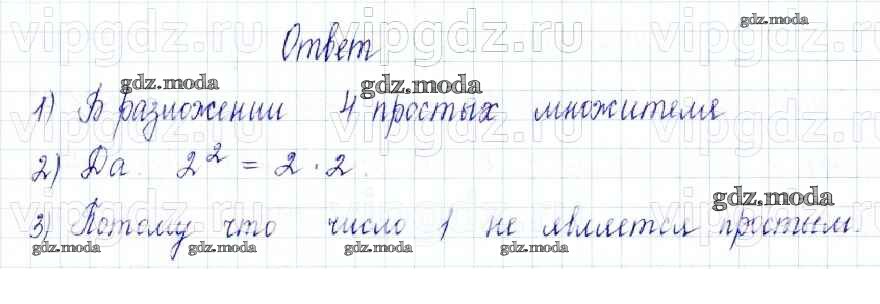 vipgdz.ru vipgdz.ru vipgdz.ru
gdz.moda
Ответ
gdz.moda gdz.moda
1) В разложении 4 простых множителя
2) Да. 2² = 2 · 2.
gdz.moda
3) Потому что число 1 не является простым.
gdz.moda gdz.moda gdz.moda gdz.moda